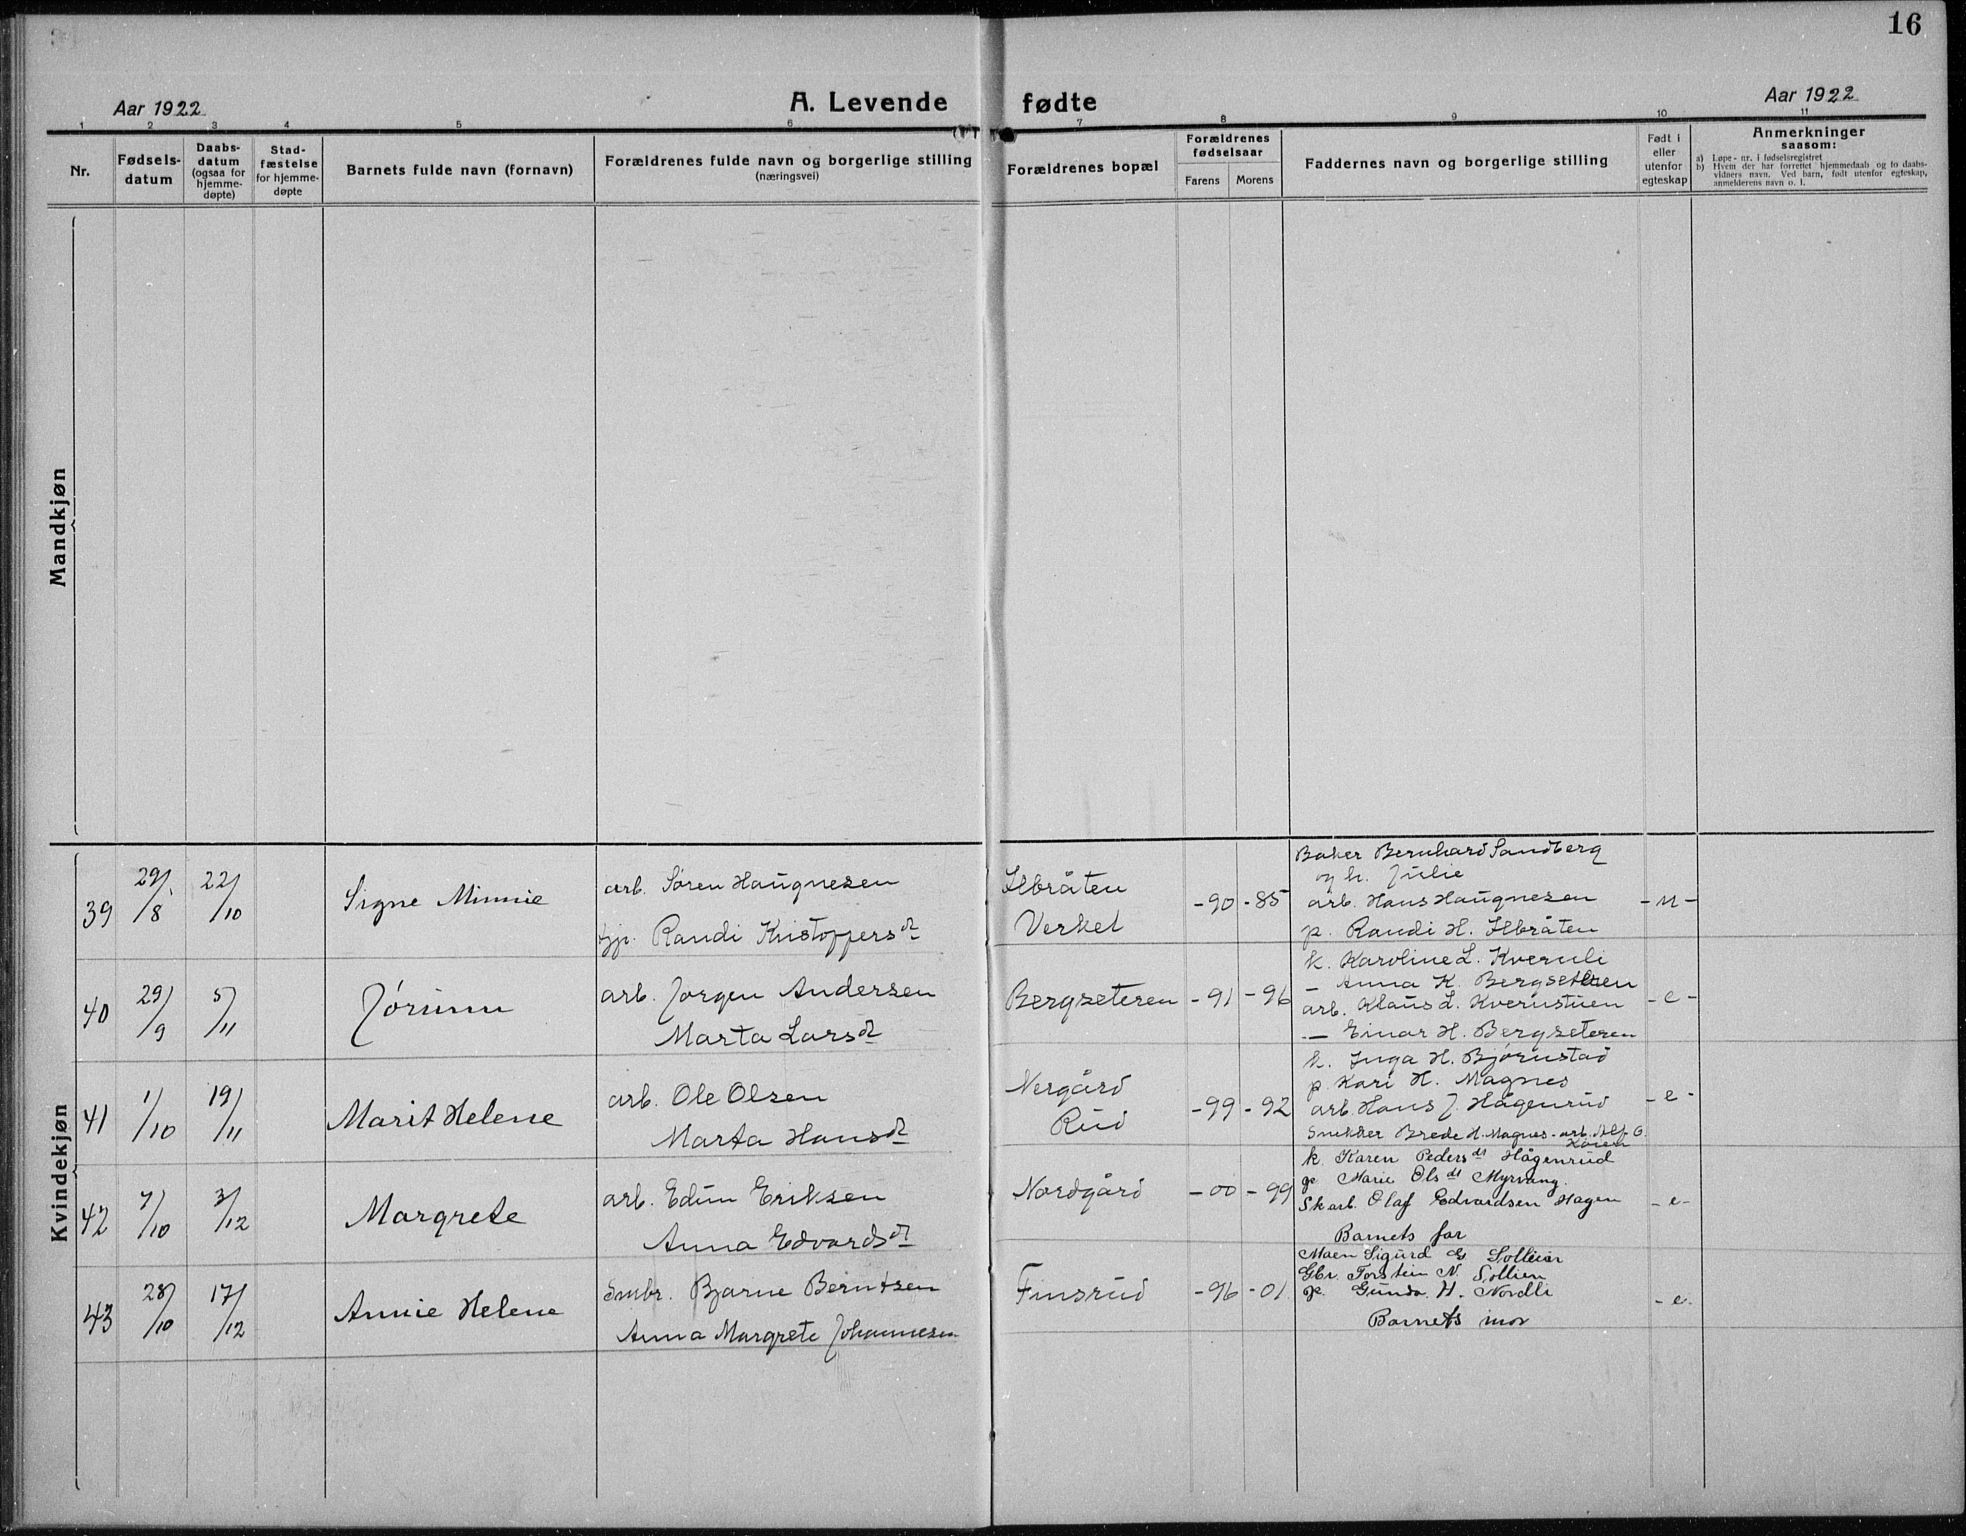 16
Aar 1922
A. Levende fødte
Aar 1922
1 2 3 4 5 6 7 8 9 10 11
Nr.
Fødsels-
datum
Daabs-
datum
(ogsaa for
hjemme-
døpte)
Stad-
fæstelse
for hjemme-
døpte
Barnets fulde navn (fornavn)
Forældrenes fulde navn og borgerlige stilling
(næringsvei)
Forældrenes bopæl
Forældrenes
fødselsaar
Farens Morens
Faddernes navn og borgerlige stilling
Født i
eller
utenfor
egteskap
Anmerkninger
saasom:
a) Løpe-nr. i fødselsregistret
b) Hvem der har forrettet hjemmedaab og to daabs-
vidners navn. Ved barn, født utenfor egteskap,
anmelderens navn o. l.
Mandkjøn
Kvindekjøn
39 29/8 22/10 Signe Minnie
arb. Søren Haugnesen
Randi Kristoffersd
Ilbråten
Verket
-90 -85
Baker Bernhard Sandberg
og h. Julie
arb. Hans Haugnesen
p. Randi H. Ilbråten
-u-
40 29/9 5/11 Jørunn
arb. Jørgen Andersen
Marta Larsd
Bergseteren
-91 -96
k. Karoline L. Kvernli
— Anna K. Bergseteren
arb. Klaus L. Kvernstuen
— Einar H. Bergseteren
-e-
41 1/10 19/11 Marit Helene
arb. Ole Olsen
Marta Hansd
Nergård
Rud
-99 -92
k. Inga H. Bjørnstad
p. Kari H. Magnes
arb. Hans J Hågenrud
Snekker Brede H. Magnes - arb. Alf O.
-e-
42 7/10 3/12 Margrete
arb. Edun Eriksen
Anna Edvardsd
Nordgård
-00 -99
k. Karen Pedersdt Hågenrud
p. Marie Olsdt Myrvang.
Skarb. Olaf Edvardsen Hagen
Barnets far
-e-
43 28/10 17/12 Annie Helene
Smbr. Bjarne Berntsen
Anna Margrete Johannesen
Finsrud
-96 -01
Sigurd G Solliein
Gbr. Torstein N. Sollien
p. Gunda H. Nordli
Barnets mor
-e-